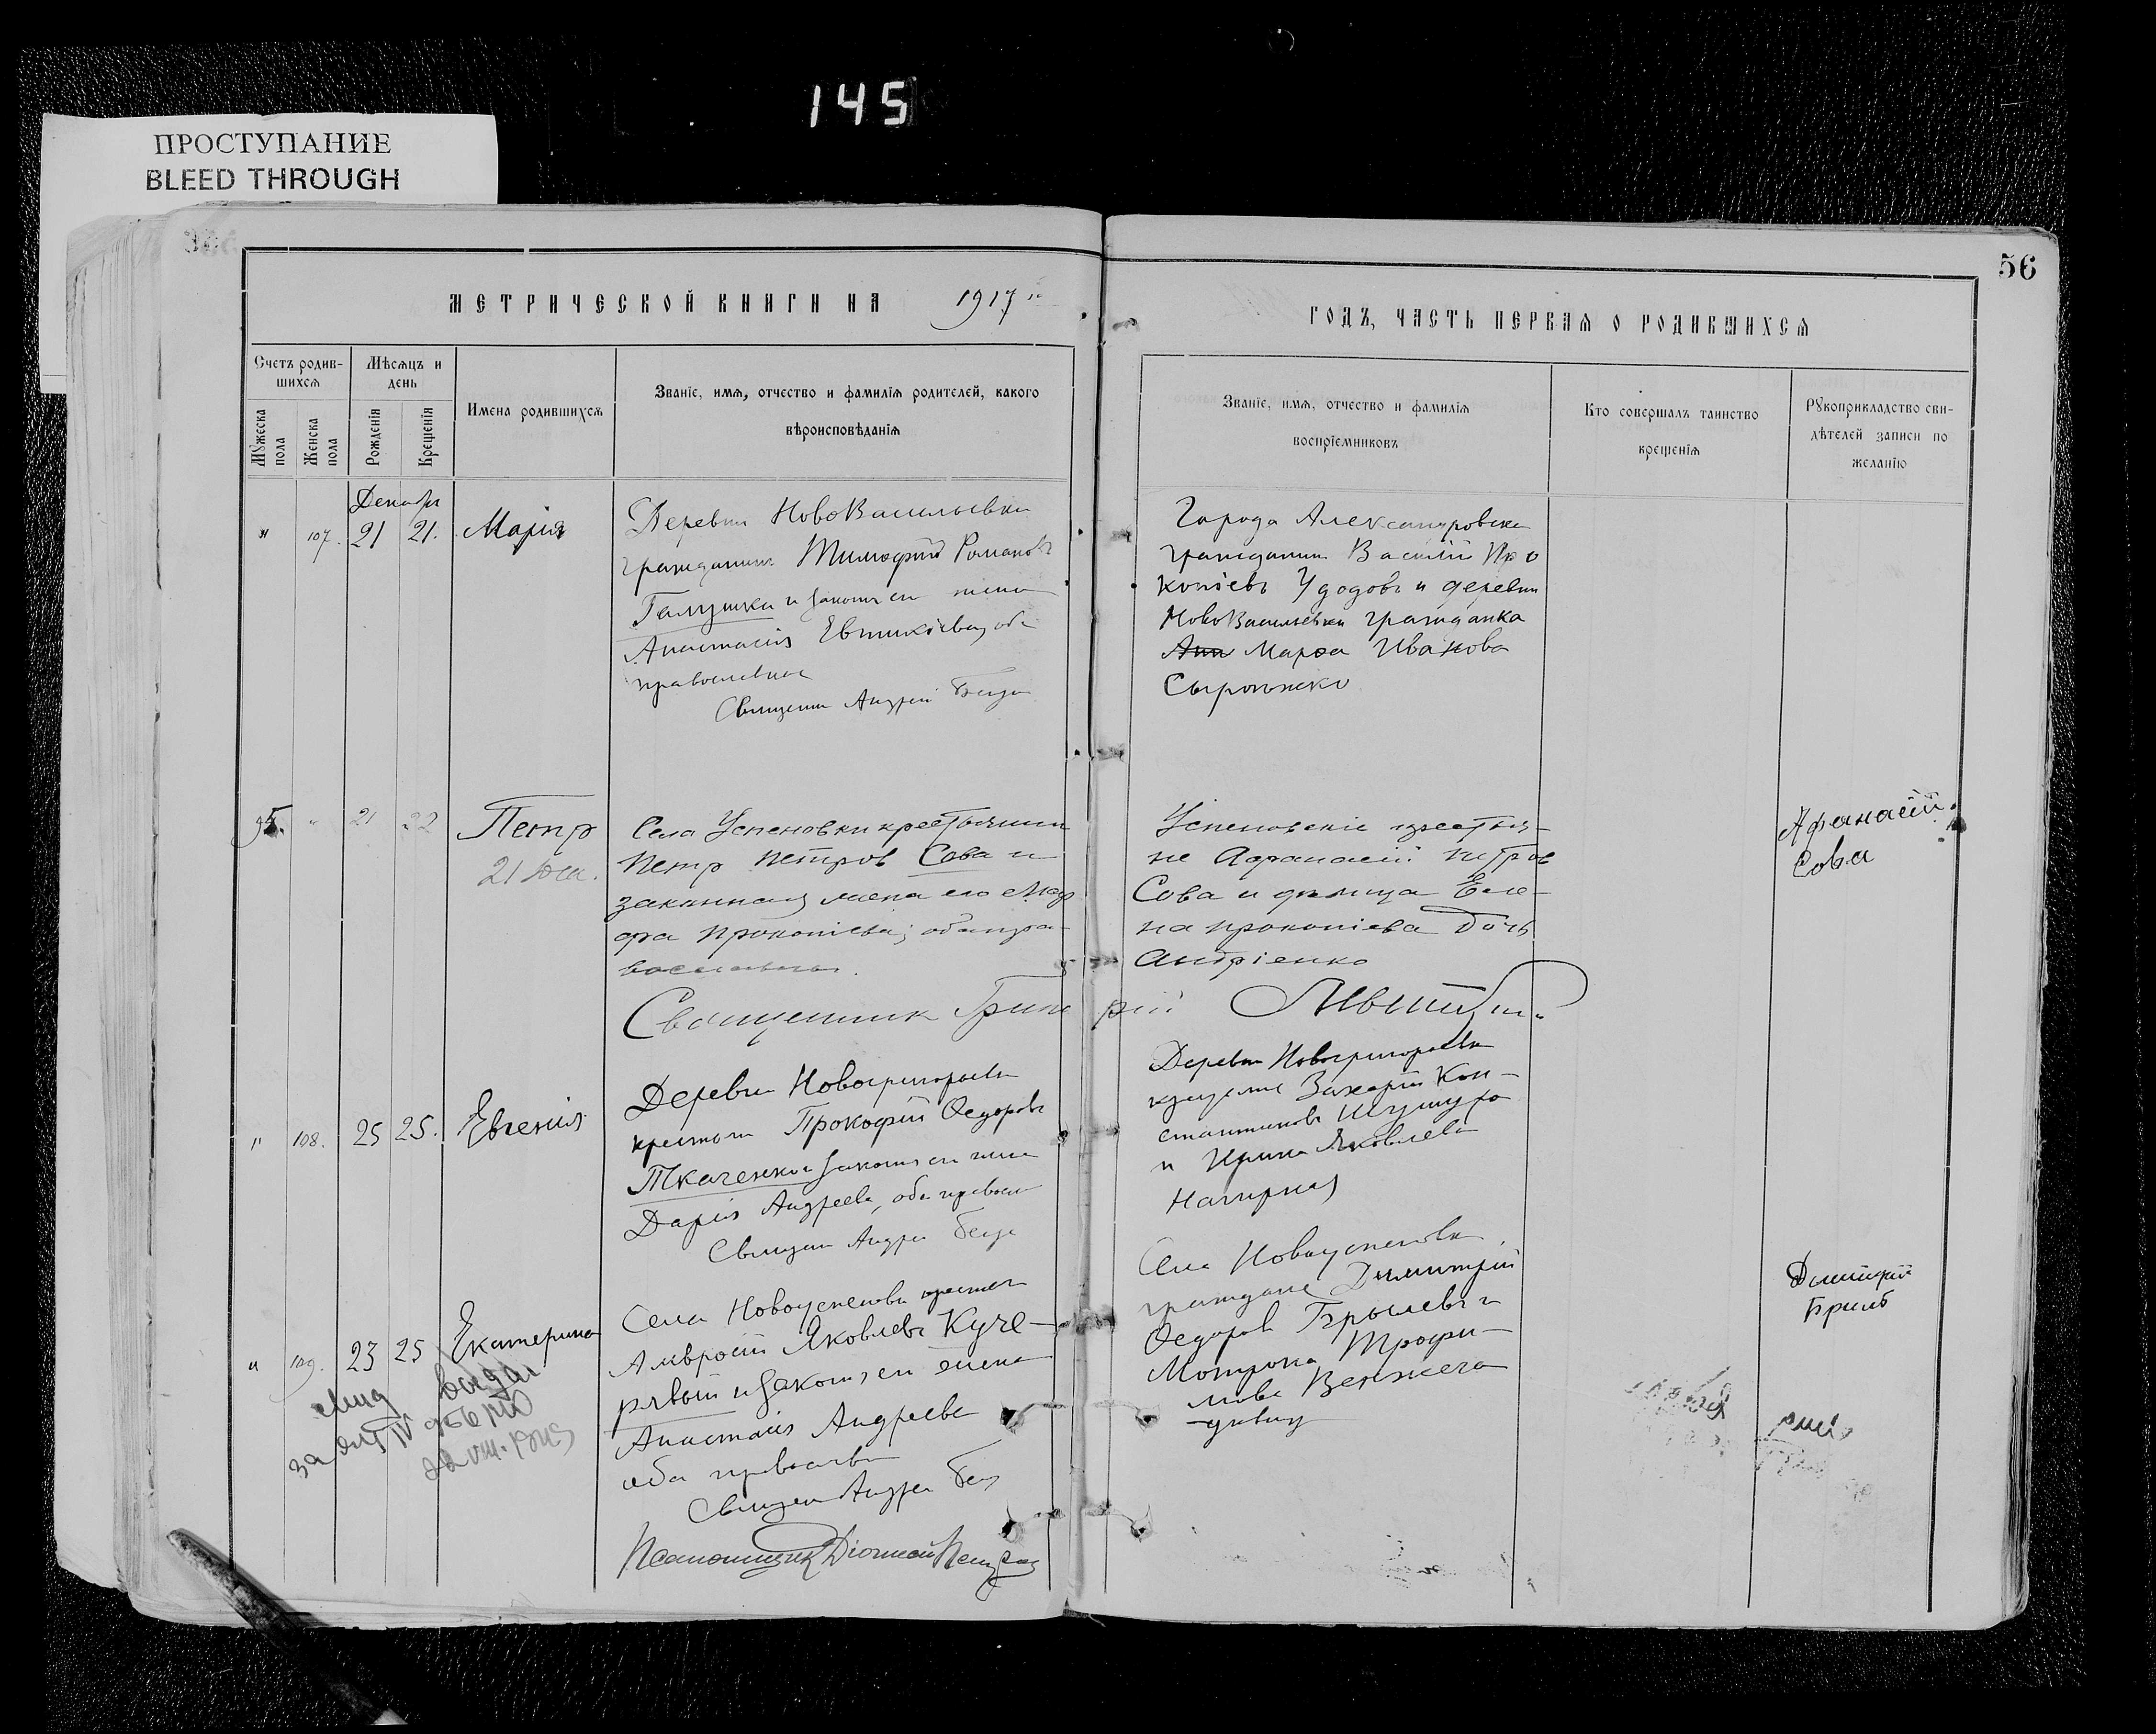 145
ПРОСТУПАНИЕ
BLEED THROUGH
56
МЕТРИЧЕСКОЙ КНИГИ НА 1917
ГОДЪ, ЧАСТЬ ПЕРВАЯ О РОДИВШИХСЯ
Счетъ родив-
шихся
Мѣсяцъ и
день
Мужеска
пола
Женска
пола
Рожденія
Крещенія
Имена родившихся
Званіе, имя, отчество и фамилія родителей, какого
вѣроисповѣданія
Званіе, имя, отчество и фамилія
воспріемниковъ
Кто совершалъ таинство
крещенія
Рукоприкладство сви-
дѣтелей записи по
желанію
Декабр
" 107. 21 21. Марія
Деревни НовоВасильевки
гражданинъ Тимофей Романовъ
Галушка и законн ея жена
Анастасія Евтихіева, оба
православные
Священ Андрей
Города Александровска
гражданин Василій Про
копіевъ Удодовъ и деревни
НовоВасильевки гражданка
Марѳа Иванова
95. " 21 22 Петр
21
Села Успеновки крестьянин
Петр Петров Сова и
законная жена его Мар
фа Прокопіева; оба пра
вославные.
Успеновскіе крестья-
не Афанасій Петров
Сова и девица Еле-
на Прокопіева дочь
Андріенко
Афанасій
Сова
Священник
" 108. 25 25. Евгенія
Деревни Новогригорьевки
крестьян Прокофій Ѳедоровъ
Ткаченко и законн ея жена
Дарія Андреева, оба правосл
Священ Андрей
Деревни Новогригорьевки
Захарій Кон-
стантиновъ
и Ирина Яковлева
Нагирная
" 109. 23 25 Екатерина
Села Новоуспеновки крестьян
Амвросій Яковлевъ Куче-
рявый и законн ея жена
Анастасія Андреева
оба православн
Священ Андрей
Села Новоуспеновки
граждане Димитрій
Ѳедоров Брылевъ и
Мотрона Трофи-
мова Венжега
девиц
Дмитрій
Бриль
Псаломщик